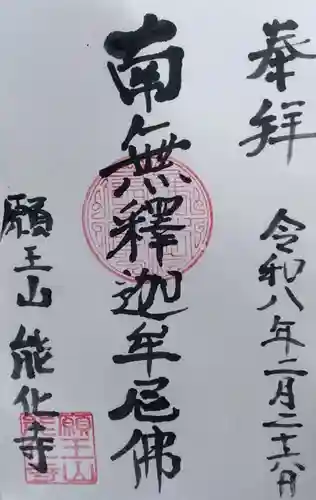 奉拝
令和八年二月二十八日
南無釋迦牟尼佛
願王山 能化寺
願王山
能化寺